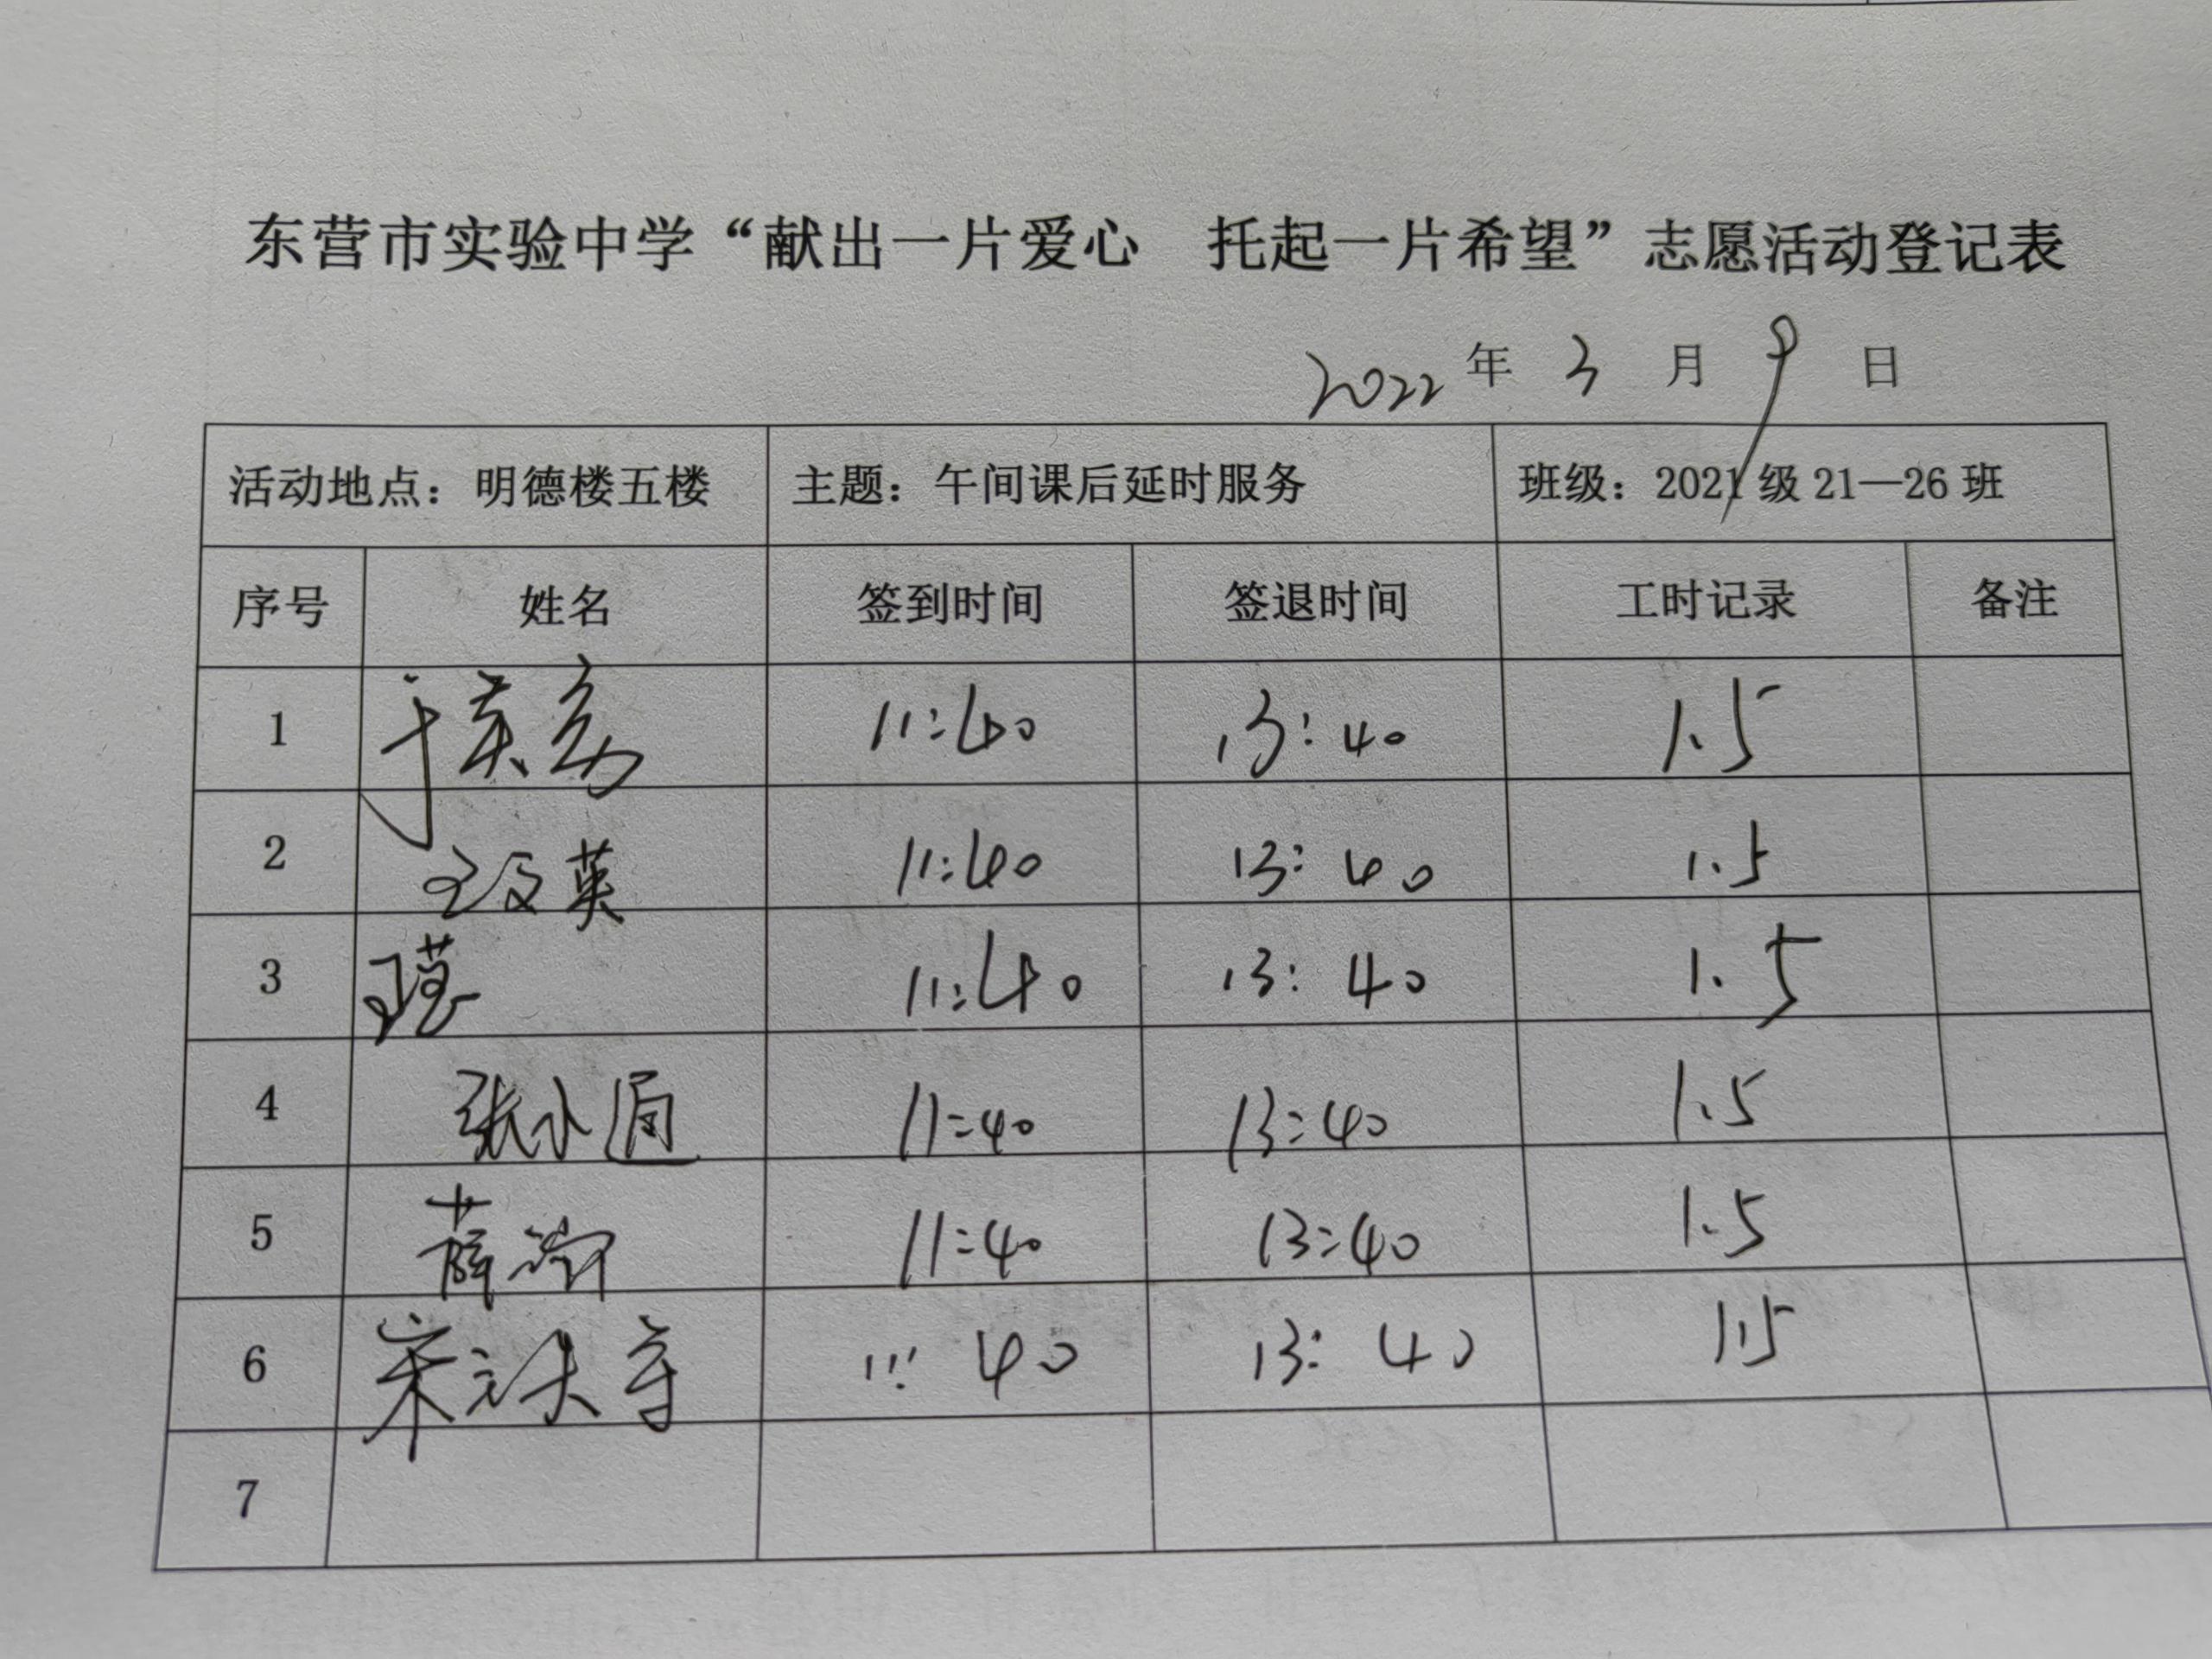 东营市实验中学“献出一片爱心 托起一片希望”志愿活动登记表
2022年 3 月 9 日
活动地点：明德楼五楼 主题：午间课后延时服务 班级：2021级21—26班
序号 姓名 签到时间 签退时间 工时记录 备注
1 11:40 13:40 1.5
2 英 11:40 13:40 1.5
3 11:40 13:40 1.5
4 张小 11:40 13:40 1.5
5 薛 11:40 13:40 1.5
6 宋 11:40 13:40 1.5
7